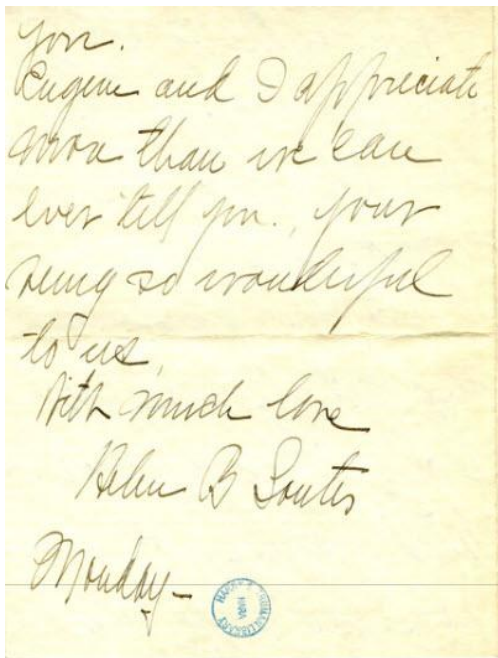 you.
Eugene and I appreciate
more than we can
ever tell you., your
being so wonderful
to us,
With much love
Helen B
Monday–
HARRY S. TRUMAN LIBRARY
NARA